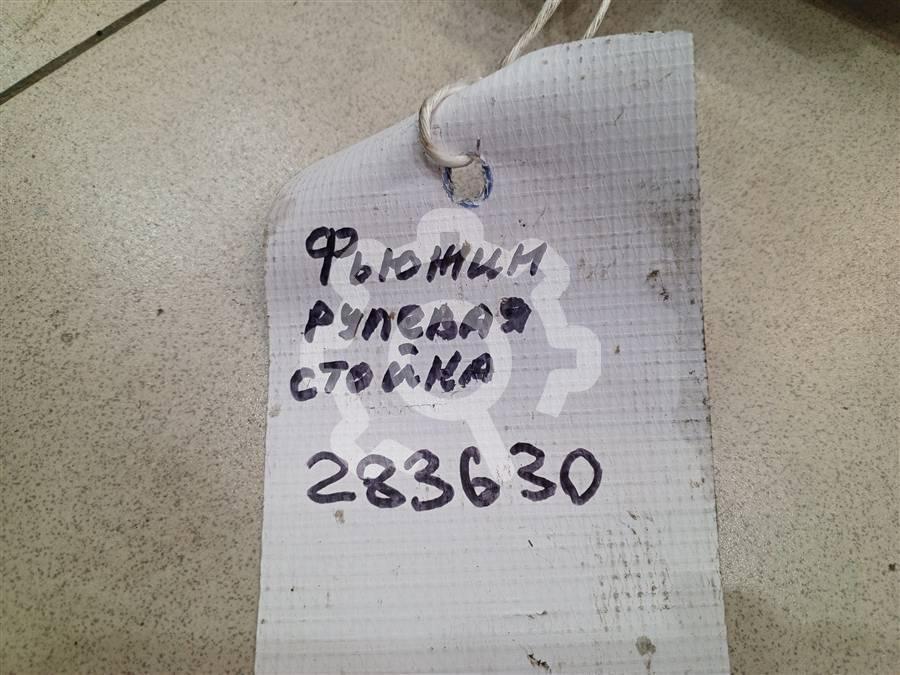 Фьюжин
рулевая
стойка
283630